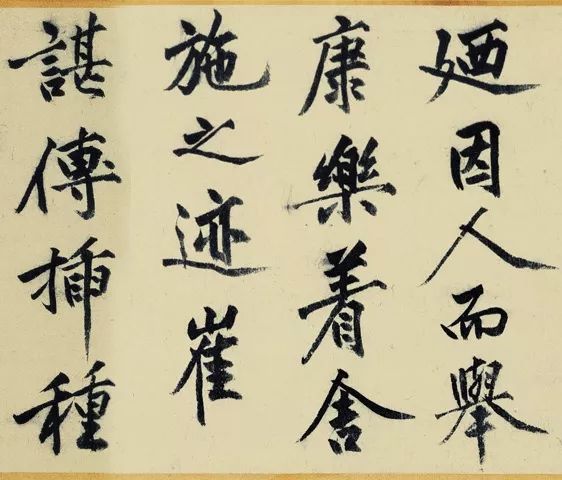 廼因人而舉
康樂着舍
施之迹崔
諶傳挿種